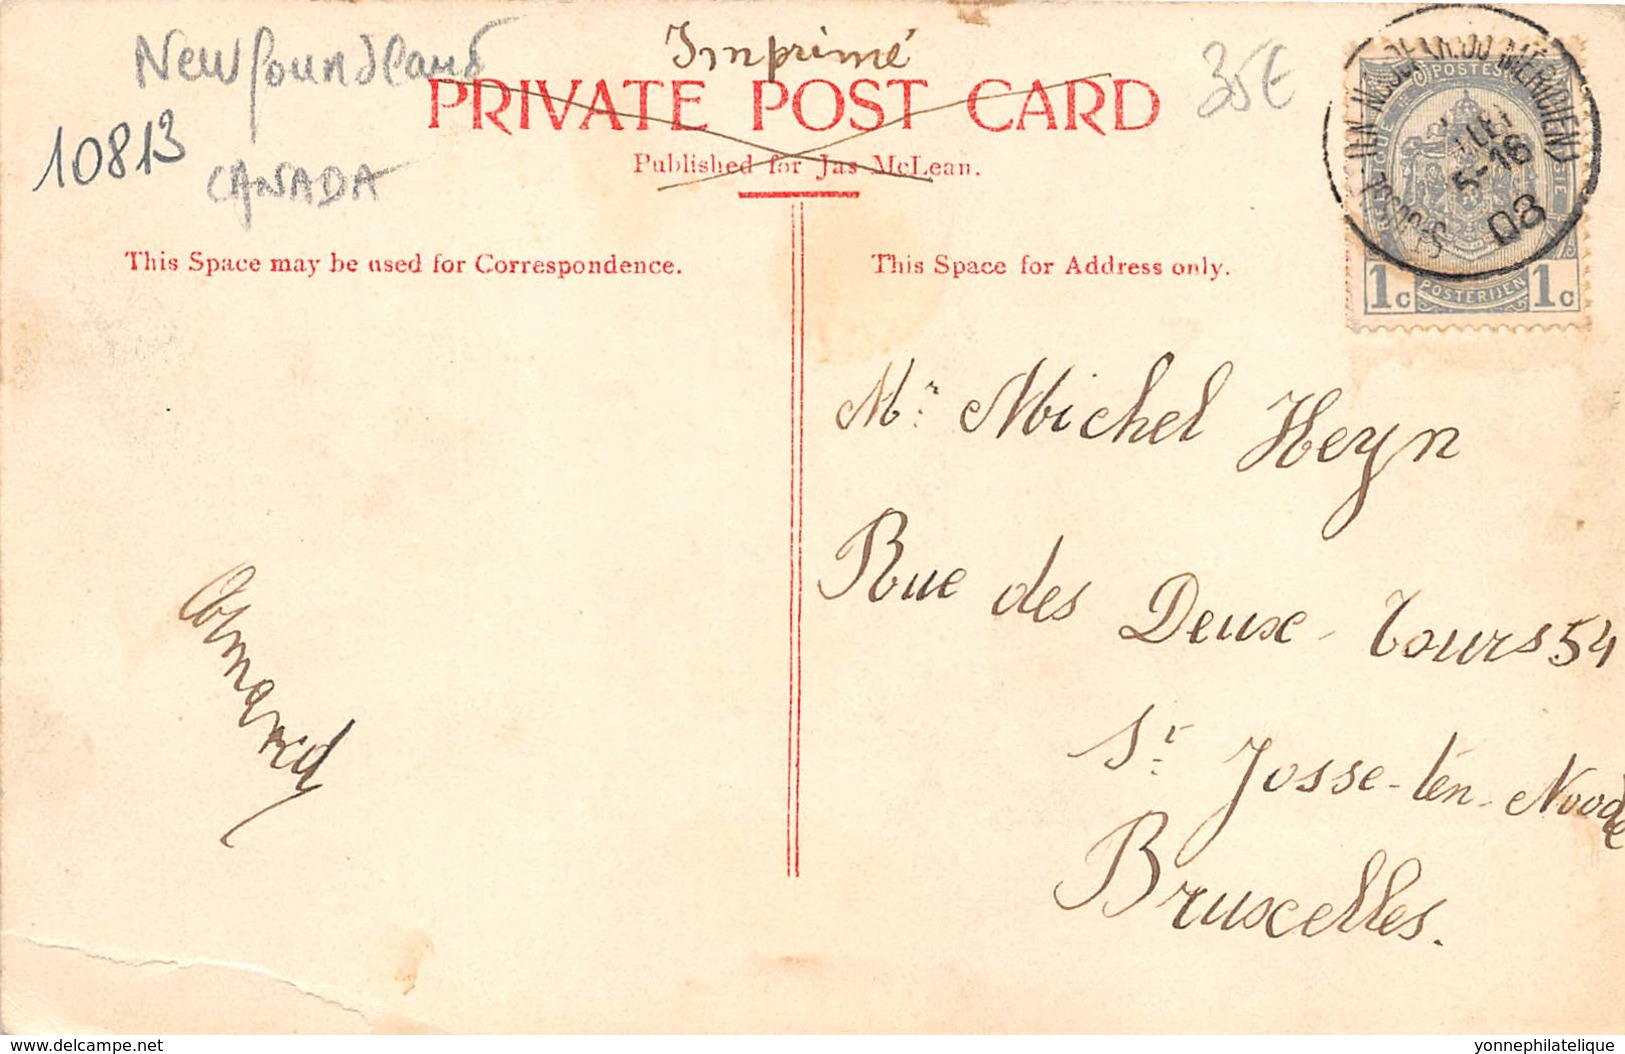 Newfoundland
Imprimé
35€
PRIVATE POST CARD
10813
CANADA
Published for Jas McLean.
This Space may be used for Correspondence.
This Space for Address only.
POSTES
BELGIQUE
5-16
08
1c POSTERIJEN 1c
Mr. Michel Heyn
Rue des Deux-Tours 54
St. Josse-tén-Noode
Bruxelles.
Armand
www.delcampe.net
yonnephilatelique